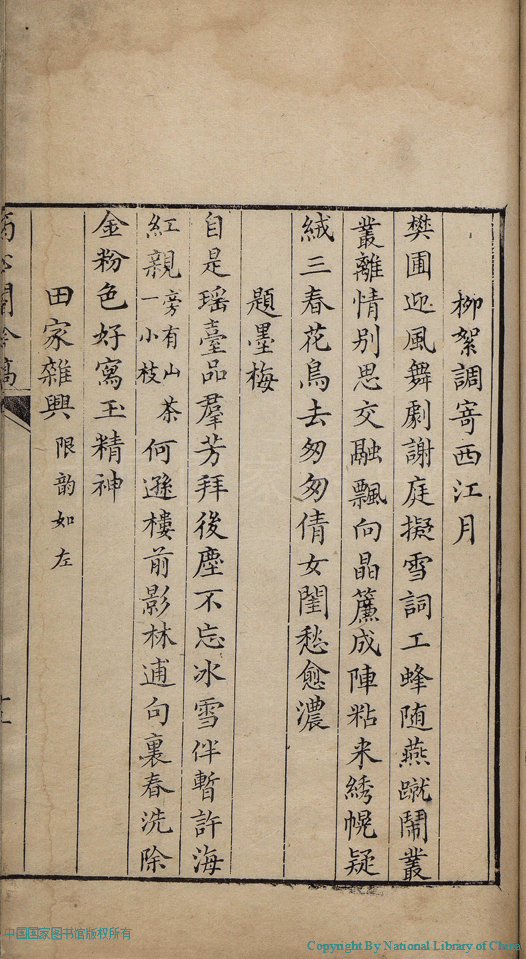 柳絮調寄西江月
樊圃迎風舞劇謝庭擬雪詞工蜂随燕蹴鬧叢
叢離情別思交融飄向晶簾成陣粘来綉幌疑
絨三春花鳥去匆匆倩女閨愁愈濃
題墨梅
自是瑶臺品羣芳拜後塵不忘冰雪伴暫許海
紅親旁有山茶一小枝何遜樓前影林逋句裏春洗除
金粉色好寫玉精神
田家雜興限韵如左
中国国家图书馆版权所有
Copyright By National Library of China